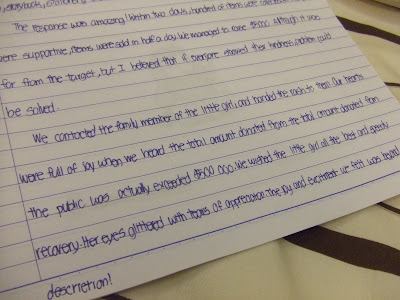 storybooks, stationery
The response was amazing! Within two days, hundred of items were
were supportive, items were sold in half a day. We managed to raise $5000. Although it was
far from the target, but I believed that if everyone showed their kindness, problem could
be solved.
We contacted the family member of the little girl, and handed the cash to them. Our hearts
were full of joy when we heard the total amount donated from the total amount donated from
the public was actually exceeded $500 000. We wished the little girl all the best and speedy
recovery. Her eyes glittered with tears of appreciation. The joy and excitement we felt was beyond
descretion!